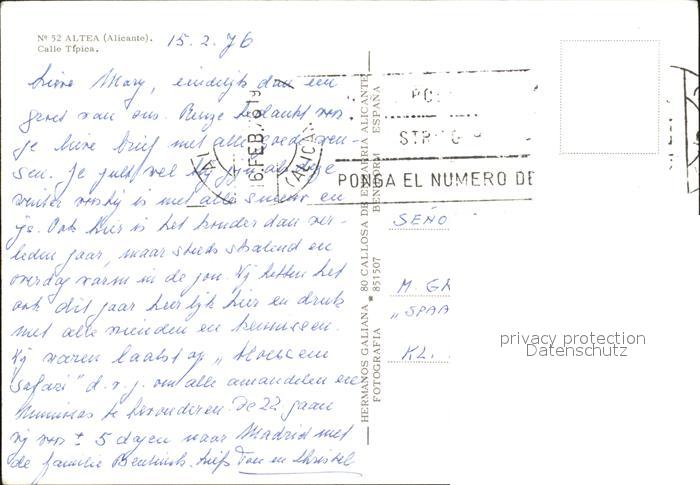 Nº 52 ALTEA (Alicante).
Calle Típica.
15.2.76
Lieve Mary, eindelijk dan een
groet van ons. Benje bedankt voor
je lieve brief met alle goede wen-
sen. Je zult wel blij zijn als je
winter voorbij is met alle sneeuw en
ijs. Ook hier is het kouder dan ver-
leden jaar, maar steeds stralend en
overdag warm in de zon. Wij hebben het
ook dit jaar heerlijk hier en druk
met alle vrienden en kennissen.
Wij waren laatst op "Bloesem
safari" d.w.z. om alle amandelen en
mimosas te bewonderen. De 22 gaan
wij voor ± 5 dagen naar Madrid met
de familie liefs Ton en Christel
16 FEB. 76
(ALICANTE)
STR
PONGA EL NUMERO DE
HERMANOS GALIANA * 80 CALLOSA DE ENSARRIA ALICANTE
FOTOGRAFIA * 851507 BENIDORM ESPAÑA
SEÑO
M. GR
"SPAA
KL.
privacy protection
Datenschutz